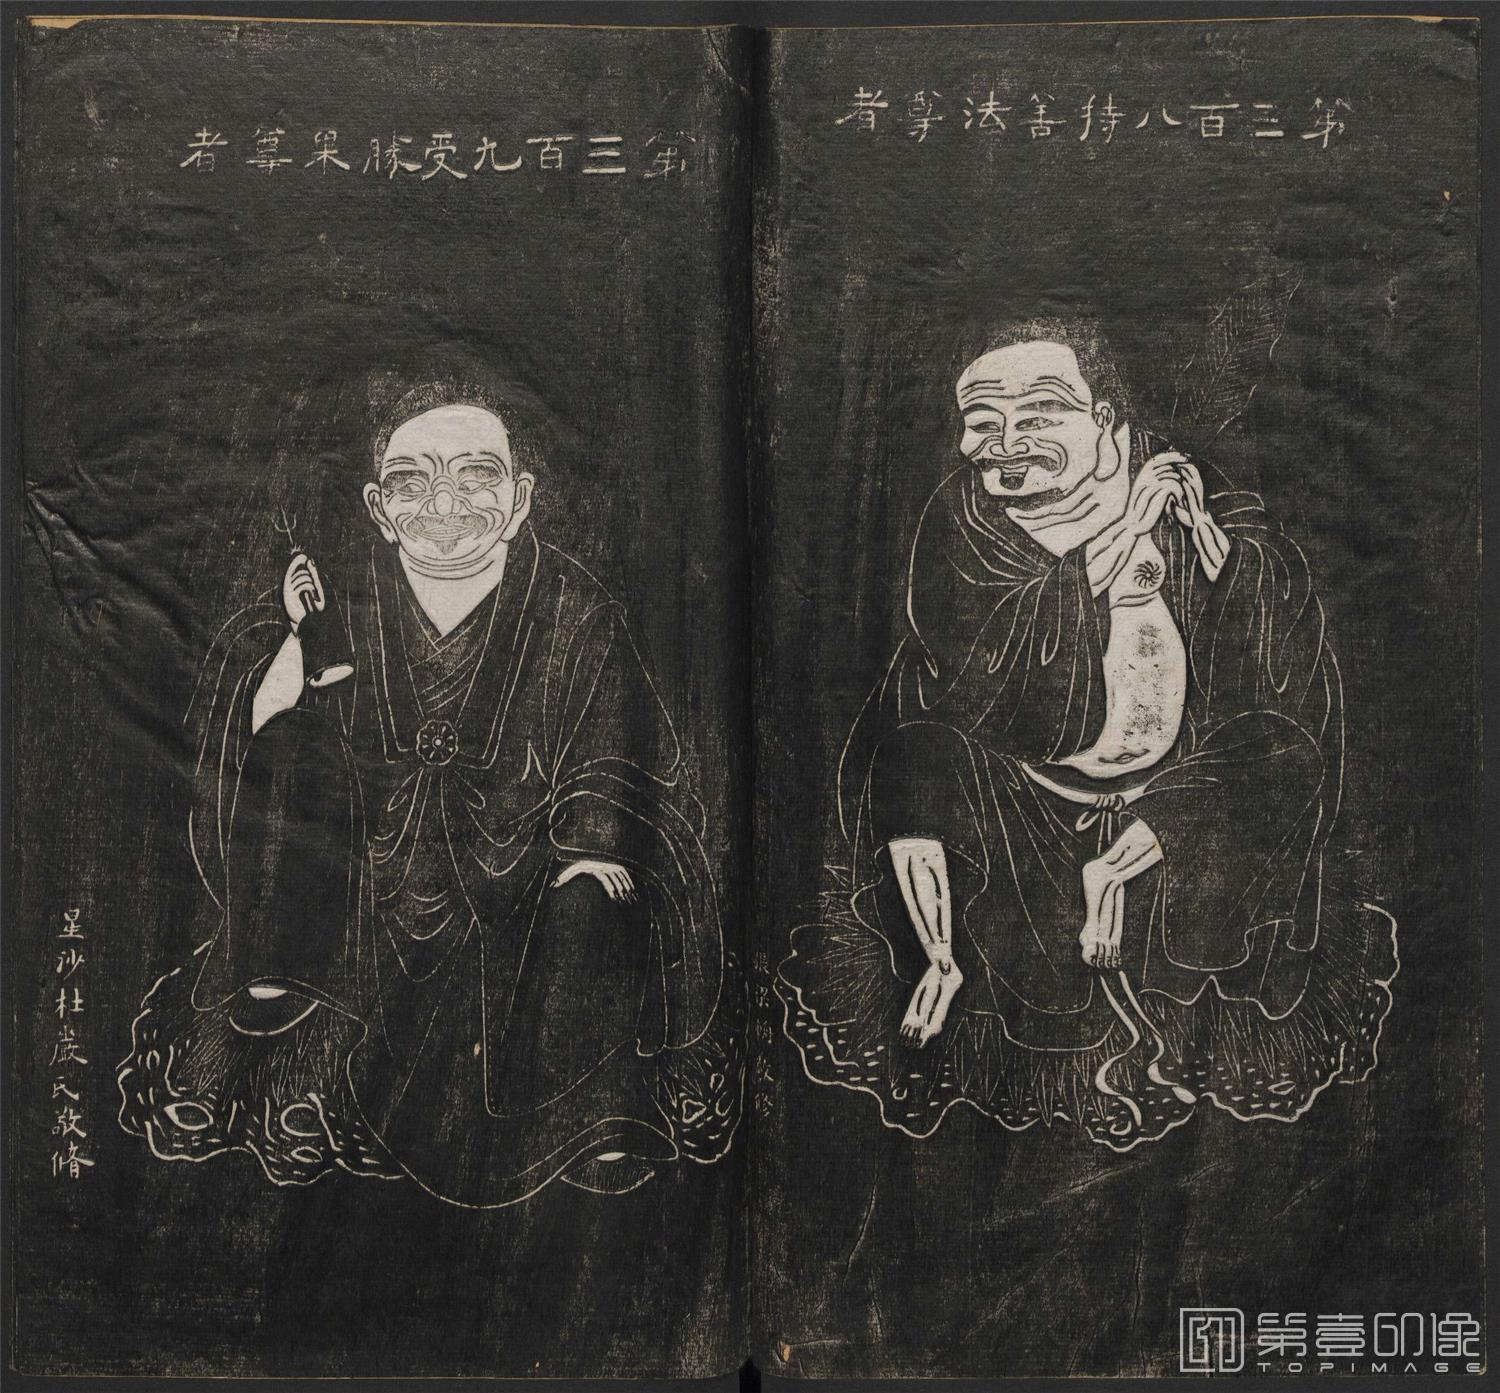 第三百八持善法尊者
第三百九受勝果尊者
敬修
星沙杜嚴氏敬脩
第壹印像
TOPIMAGE